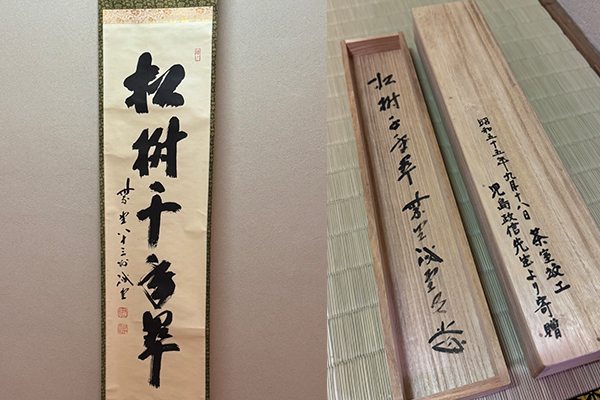 松樹千年翠
紫野八十三 誡堂
松樹千年翠 紫野誡堂
昭和五十五年九月十八日 茶室竣工
児島政信先生より寄贈